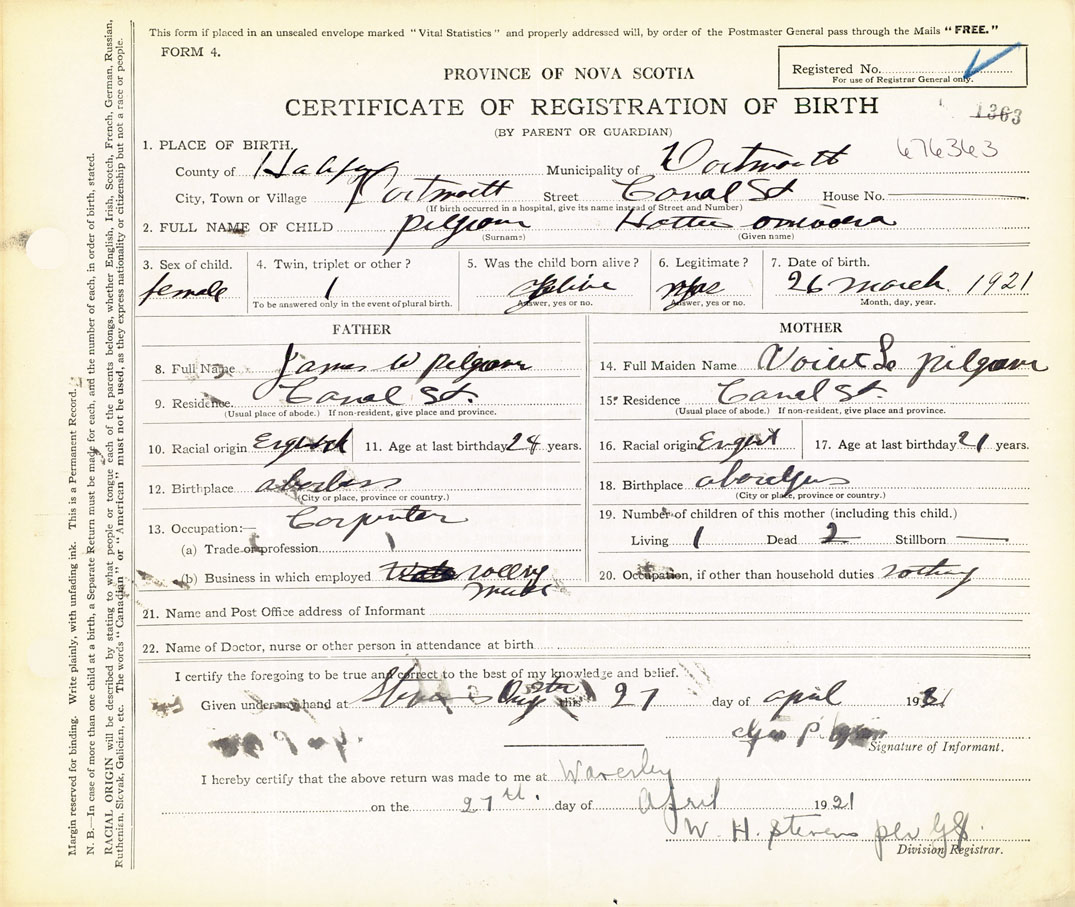 This form if placed in an unsealed envelope marked "Vital Statistics" and properly addressed will, by order of the Postmaster General pass through the Mails "FREE."
FORM 4.
Registered No.
For use of Registrar General only.
PROVINCE OF NOVA SCOTIA
CERTIFICATE OF REGISTRATION OF BIRTH
1363
(BY PARENT OR GUARDIAN)
676363
1. PLACE OF BIRTH.
County of Halifax Municipality of Dartmouth
City, Town or Village Dartmouth Street Canal St House No.
(If birth occurred in a hospital, give its name instead of Street and Number)
2. FULL NAME OF CHILD Pilgram Hattie
(Surname) (Given name)
3. Sex of child. 4. Twin, triplet or other? 5. Was the child born alive? 6. Legitimate? 7. Date of birth.
female 1 alive yes 26 march 1921
To be answered only in the event of plural birth. Answer, yes or no. Answer, yes or no. Month, day, year.
FATHER MOTHER
8. Full Name James W Pilgram 14. Full Maiden Name Pilgram
9. Residence. Canal St. 15. Residence Canal St.
(Usual place of abode.) If non-resident, give place and province. (Usual place of abode.) If non-resident, give place and province.
10. Racial origin 11. Age at last birthday 24 years. 16. Racial origin 17. Age at last birthday 21 years.
12. Birthplace 18. Birthplace
(City or place, province or country.) (City or place, province or country.)
13. Occupation:— Corpenter 19. Number of children of this mother (including this child.)
(a) Trade or profession Living 1 Dead 2 Stillborn —
(b) Business in which employed 20. Occupation, if other than household duties nothing
21. Name and Post Office address of Informant
22. Name of Doctor, nurse or other person in attendance at birth
I certify the foregoing to be true and correct to the best of my knowledge and belief.
Given under my hand at this 27 day of april 1921
Signature of Informant.
I hereby certify that the above return was made to me at Waverley
on the 27th. day of April 1921
W. H. Stevens per
Division Registrar.
Margin reserved for binding. Write plainly, with unfading ink. This is a Permanent Record.
N. B.—In case of more than one child at a birth, a Separate Return must be made for each, and the number of each, in order of birth, stated.
RACIAL ORIGIN will be described by stating to what people or tongue each of the parents belongs, whether English, Irish, Scotch, French, German, Russian,
Ruthenian, Slovak, Galician, etc. The words "Canadian" or "American" must not be used, as they express nationality or citizenship but not a race or people.